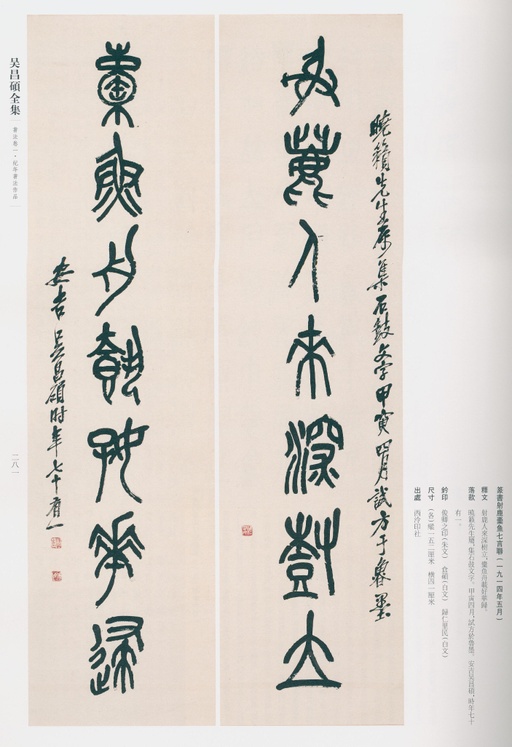 篆書射鹿橐魚七言聯(一九一四年五月)
釋文 射鹿人來深樹立,橐魚舟載好華歸。
落款 曉籟先生屬,集石鼓文字。甲寅四月,試方于魯墨。安吉吳昌碩,時年七十
有一。
鈐印 俊卿之印(朱文) 倉碩(白文) 歸仁里民(白文)
尺寸 (各)縱一五二厘米 橫四一厘米
出處 西泠印社
曉籟先生屬集石鼓文字甲寅四月試方于魯墨
射鹿人來深樹立
橐魚舟載好華歸
安吉吳昌碩時年七十有一
吴昌碩全集
書法卷一·紀年書法作品
二八一